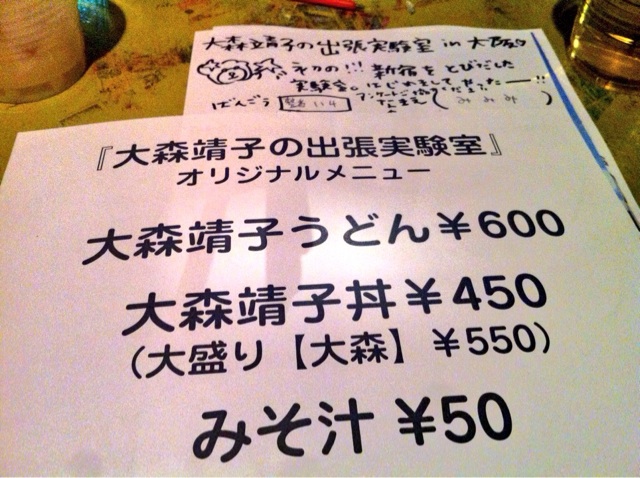 大森靖子の出張実験室 in 大阪
その1!!! 新宿をとびだした
実験室。はじめまして
アンケートに
ばんごう
なまえ( みみみ )
『大森靖子の出張実験室』
オリジナルメニュー
大森靖子うどん¥600
大森靖子丼¥450
(大盛り【大森】¥550)
みそ汁 ¥50